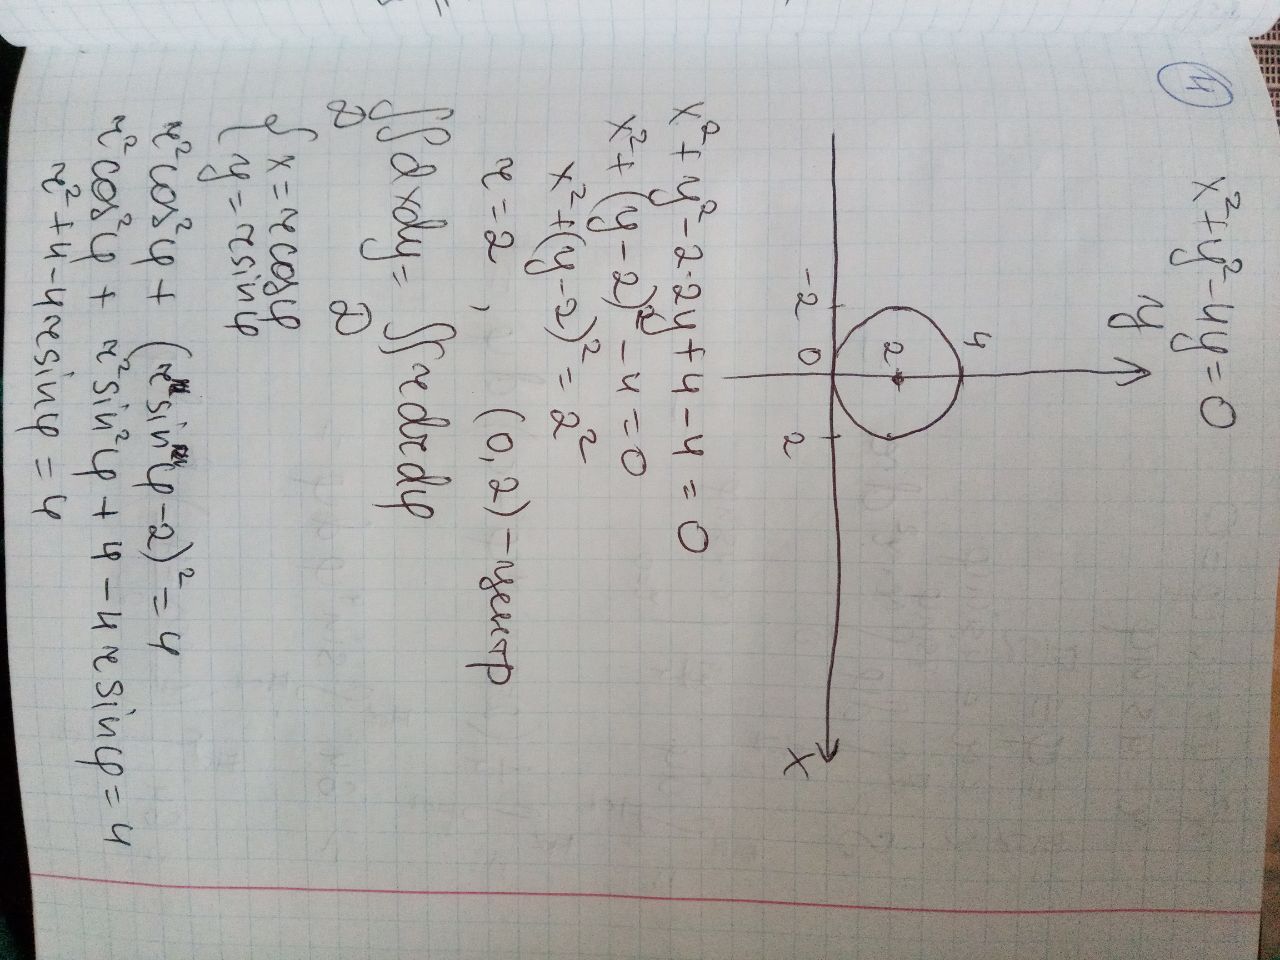 4
x²+y²-4y=0
y
4
2
-2 0 2 x
x²+y²-2·2y+4-4=0
x²+(y-2)²-4=0
x²+(y-2)²=2²
r=2, (0,2)-центр
∬dxdy=∬rdrdφ
D D
{x=rcosφ
y=rsinφ
r²cos²φ+(rsinφ-2)²=4
r²cos²φ+r²sin²φ+4-4rsinφ=4
r²+4-4rsinφ=4